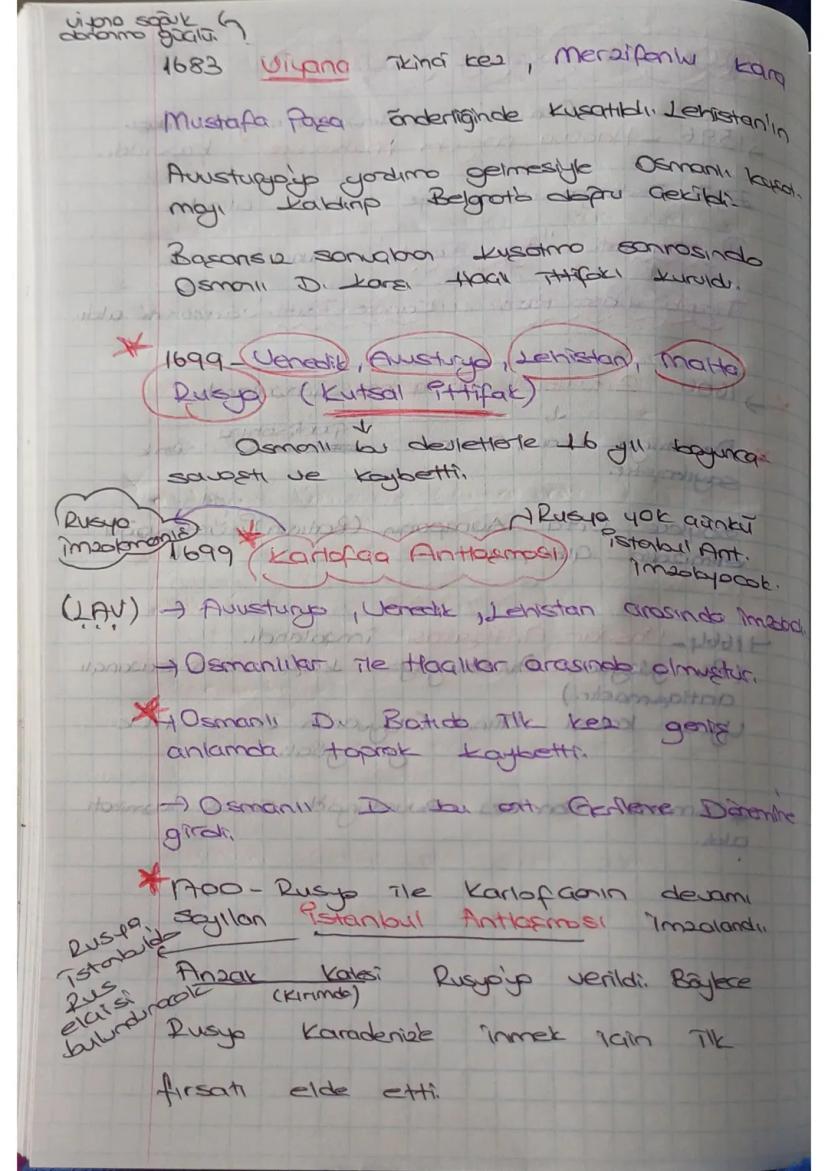 viyana soğuk
donanma güçlü
1683 Viyana ikinci kez, Merzifonlu Kara
Mustafa Paşa önderliğinde kuşatıldı. Lehistan'ın
Avusturya'ya yardıma gelmesiyle Osmanlı kuşat-
mayı kaldırıp Belgrat'a doğru çekildi.
Başarısız sonuçlanan kuşatma sonrasında
Osmanlı D. karşı Haçlı ittifakı kuruldu.
1699 - Venedik, Avusturya, Lehistan, Malta
Rusya (Kutsal İttifak)
Osmanlı bu devletlerle 16 yıl boyunca
savaştı ve kaybetti.
Rusya
imzalamamış
→ Rusya yok çünkü
İstanbul Ant.
imzalayacak.
1699 Karlofça Antlaşması
(LAV) → Avusturya, Venedik, Lehistan arasında imzalad.
→ Osmanlılar ile Haçlılar arasında olmuştur.
→ Osmanlı D. Batıda ilk kez geniş
anlamda toprak kaybetti.
→ Osmanlı D bu ant Gerileme Dönemine
girdi.
1700 - Rusya ile Karlofçanın devamı
sayılan İstanbul Antlaşması imzalandı.
Rusya,
İstanbulda
Rus
elçisi
bulunduracak
Anzak Kalesi Rusya'ya verildi. Böylece
(Kırımda)
Rusya Karadenize inmek için ilk
fırsatı elde etti.